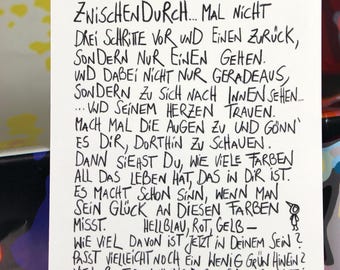 ZWISCHENDURCH... MAL NICHT
DREI SCHRITTE VOR UND EINEN ZURÜCK,
SONDERN NUR EINEN GEHEN.
UND DABEI NICHT NUR GERADEAUS,
SONDERN ZU SICH NACH INNEN SEHEN...
...UND SEINEM HERZEN TRAUEN.
MACH MAL DIE AUGEN ZU UND GÖNN'
ES DIR, DORTHIN ZU SCHAUEN.
DANN SIEHST DU, WIE VIELE FARBEN
ALL DAS LEBEN HAT, DAS IN DIR IST.
ES MACHT SCHON SINN, WENN MAN
SEIN GLÜCK AN DIESEN FARBEN
MISST. HELLBLAU, ROT, GELB –
WIE VIEL DAVON IST JETZT IN DEINEM SEIN?
PASST VIELLEICHT NOCH EIN WENIG GRÜN HINEIN?